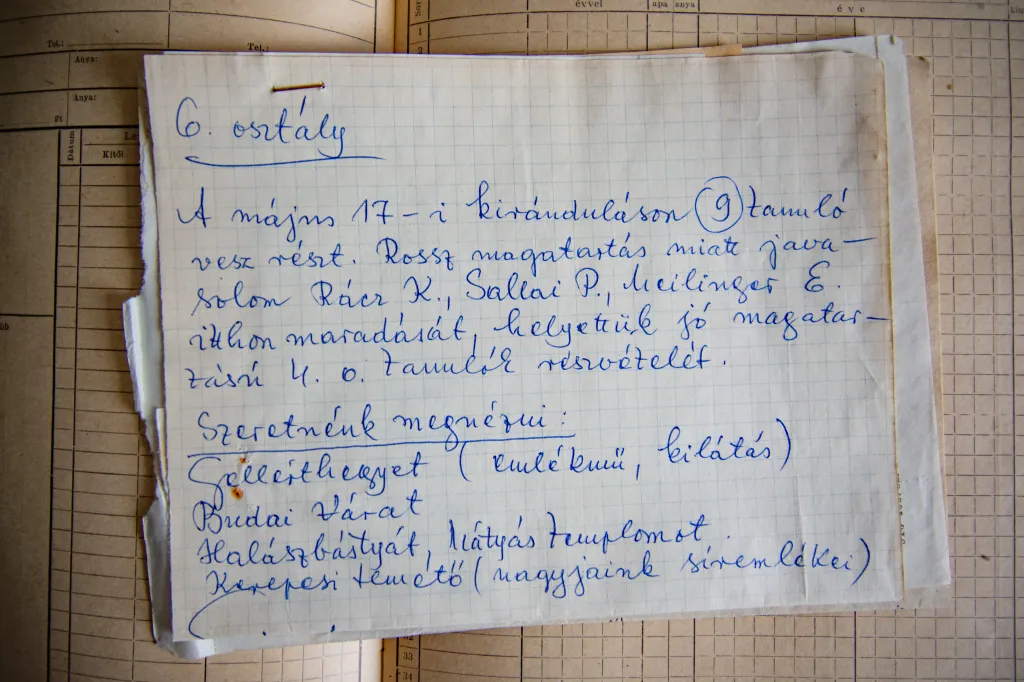 évvel
apa anya
é v e
Tel.:
Tel.:
Anya:
Anya:
Dátum
Kitől
6. osztály
A május 17-i kiránduláson 9 tanuló
vesz részt. Rossz magatartás miatt java-
solom Rácz K., Sallai P., Meilinger E.
itthon maradását, helyettük jó magatar-
tású 4. o. tanulók részvételét.
Szeretnénk megnézni:
Gellérthegyet (emlékmű, kilátás)
Budai Várat
Halászbástyát, Mátyás templomot.
Kerepesi temető (nagyjaink síremlékei)
33
34